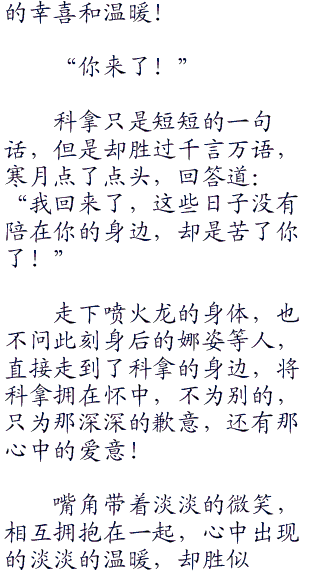 的幸喜和温暖！
“你来了！”
科拿只是短短的一句
话，但是却胜过千言万语，
寒月点了点头，回答道：
“我回来了，这些日子没有
陪在你的身边，却是苦了你
了！”
走下喷火龙的身体，也
不问此刻身后的娜姿等人，
直接走到了科拿的身边，将
科拿拥在怀中，不为别的，
只为那深深的歉意，还有那
心中的爱意！
嘴角带着淡淡的微笑，
相互拥抱在一起，心中出现
的淡淡的温暖，却胜似